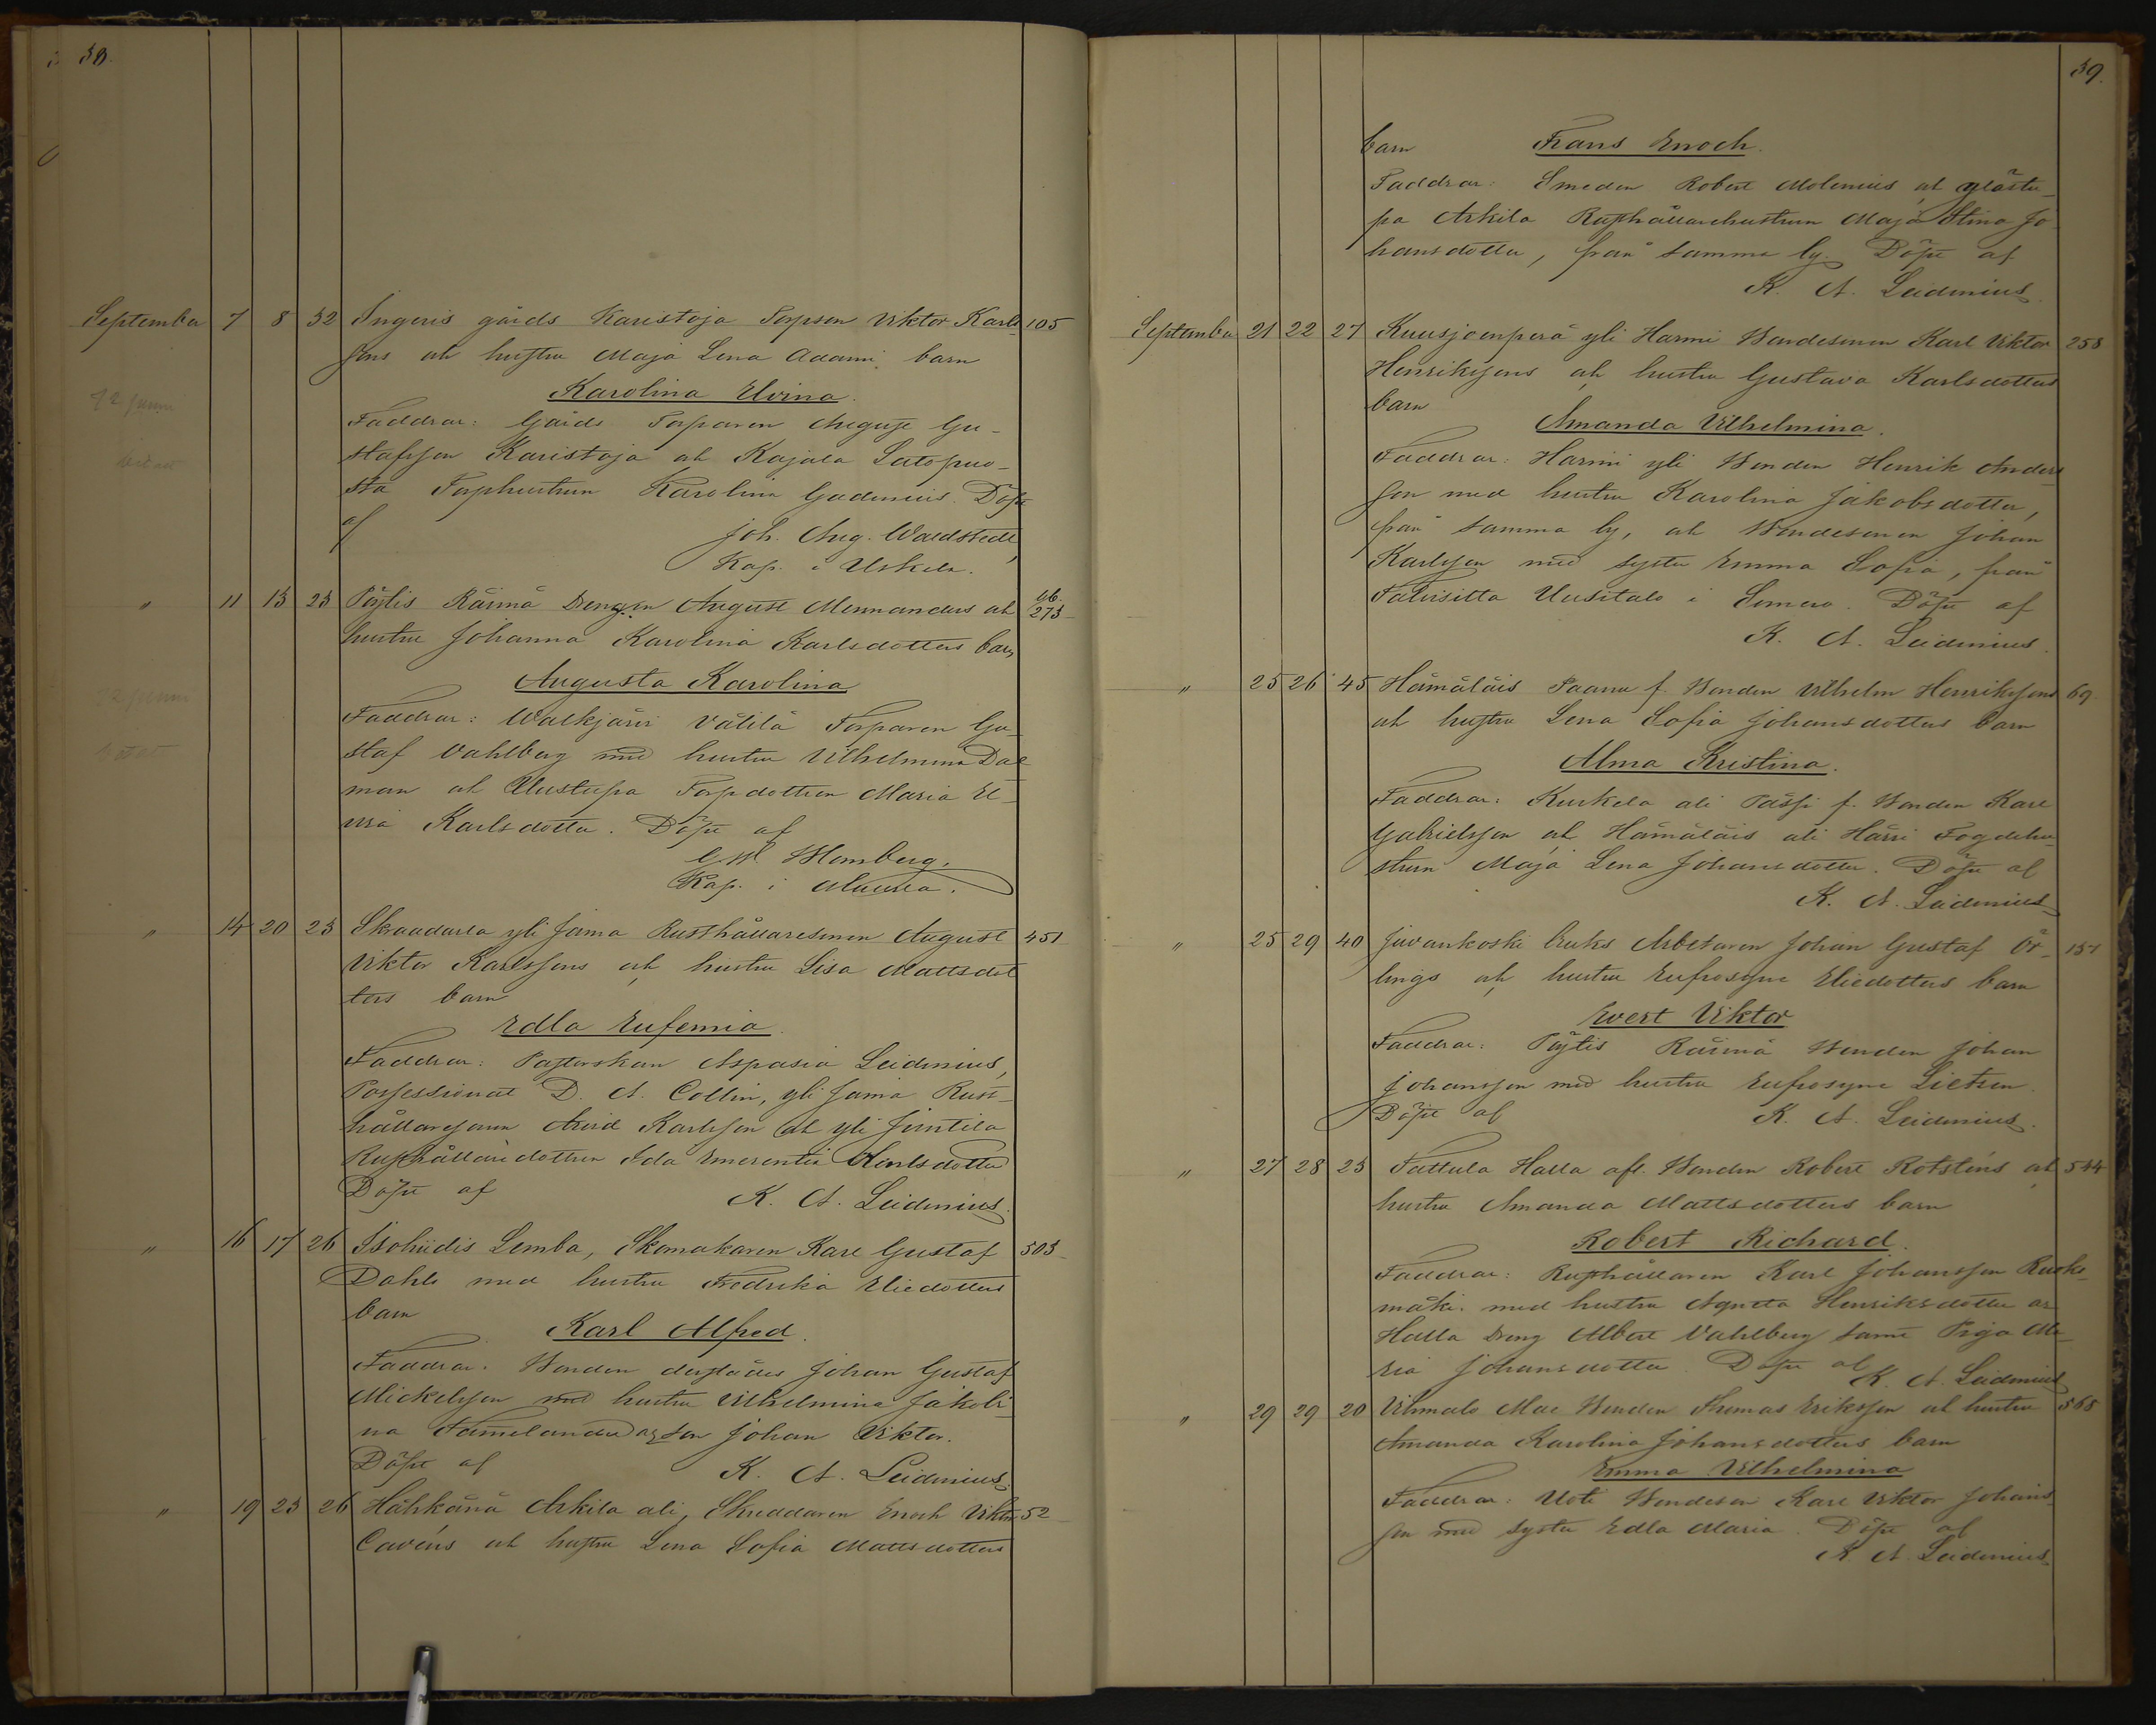 38.
September 7 8 32 Ingeris gårds Karistoja Torpson Viktor Karls 105
sons och hustru Maja Lena Adami barn
Karolina Elvina.
Faddrar: Gårds Torparen August Gu-
stafsson Karistoja och Kajala Latopuo-
sta Torphustrun Karolina Gadenius. Döpt
af
Joh. Aug. Waldstedt
Kap. i Uskela.
" 11 13 23 Pöytis Rärmä Drengen August Mennanders och 273
hustru Johanna Karolina Karlsdotters barn
Augusta Karolina
Faddrar: Walkjärvi Välilä Torparen Gu-
staf Vahlberg med hustru Vilhelmina Dal
man och Uustupa Torpdottren Maria El-
vira Karlsdotter. Döpt af
Blomberg.
Kap. i
" 14 20 23 Skraddarla yli Jama Rusthållaresonen August 451
Viktor Karlssons och hustru Lisa Mattsdot
ters barn
Edla Eufemia.
Faddrar: Pastorskan Aspasia Leidenius,
Possessionat D. A. Collin, yli Jama Rust-
hållaresonen Arvid Karlsson och yli Jintila
Rusthållaredottren Ida Emerentia Karlsdotter
Döpt af K. A. Leidenius.
" 16 17 26 Isohiidis Lemba, Skomakaren Karl Gustaf 503
Dahls med hustru Fredrika Eliedotters
barn
Karl Alfred.
Faddrar: Bonden derstädes Johan Gustaf
Mickelsson med hustru Vilhelmina Jakobi-
na Tamelander och son Johan Viktor.
Döpt af K. A. Leidenius.
" 19 23 26 Hähkänä Arkila ali, Skraddaren Enoch Viktor 52
Cavéns och hustru Lena Sofia Mattsdotters
39.
barn Frans Enoch.
Faddrar: Smeden Robert Molenius, och
pa Arkila Rusthållarehustrun Maja Stina Jo-
hansdotter, från samma by. Döpt af
K. A. Leidenius.
September 21 22 27 Kuusjoenperä yli Harmi Bondesonen Karl Viktor 258
Henrikssons och hustru Gustava Karlsdotters
barn
Amanda Vilhelmina.
Faddrar: Harmi yli Bonden Henrik Anders
son med hustru Karolina Jakobsdotter,
från samma by, och Bondesonen Johan
Karlsson med syster Emma Sofia, från
Talvisilta Uusitalo i Somero. Döpt af
K. A. Leidenius.
" 25 26 45 Hämäläis Paanu f. Bonden Vilhelm Henrikssons 69.
och hustru Lena Sofia Johansdotters barn
Alma Kristina.
Faddrar: Kurkela ali Pässi f. Bonden Karl
Gabrielsson och Hämäläis ali Härri Fogdehu-
strun Maja Lena Johansdotter. Döpt af
K. A. Leidenius
" 25 29 40 Juvankoski bruks Arbetaren Johan Gustaf Ör- 157
lings och hustru Eufrosyne Eliedotters barn
Evert Viktor
Faddrar: Pöytis Rärmä Bonden Johan
Johansson med hustru Eufrosyne Lietzen.
Döpt af K. A. Leidenius.
" 27 28 23 Tattula Halla afl. Bonden Robert Rotsténs och 544
hustru Amanda Mattsdotters barn
Robert Richard.
Faddrar: Rusthållaren Karl Johansson Ruoko-
mäki med hustru Agneta Henriksdotter och
Halla Dreng Albert Vahlberg samt Piga Ma-
ria Johansdotter. Döpt af K. A. Leidenius
" 29 29 20 Vihmalo Bonden Thomas Eriksson och hustru 568
Amanda Karolina Johansdotters barn
Emma Vilhelmina
Faddrar: Uoti Bondeson Karl Viktor Johans-
son med syster Edla Maria. Döpt af
K. A. Leidenius